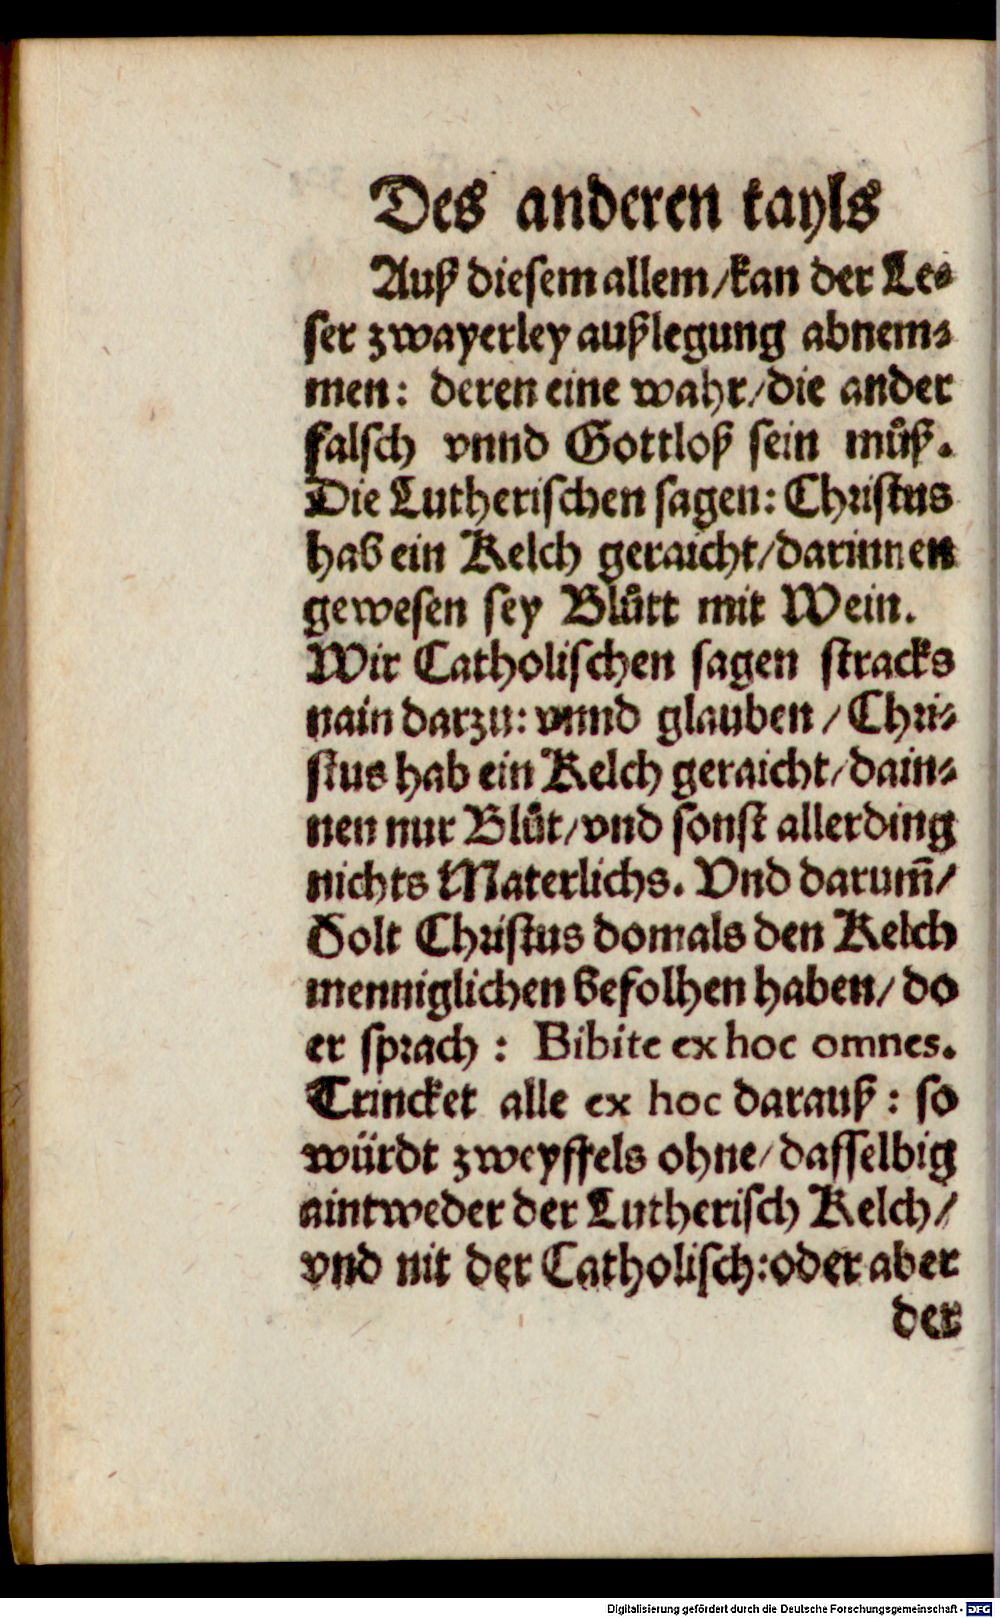 Des anderen tayls
Auß diesem allem/kan der Le-
ser zwayerley außlegung abnem-
men: deren eine wahr/die ander
falsch vnnd Gottloß sein muͦß.
Die Lutherischen sagen: Christus
hab ein Kelch geraicht/darinnen
gewesen sey Bluͦtt mit Wein.
Wir Catholischen sagen stracks
nain darzu: vnnd glauben / Chri-
stus hab ein Kelch geraicht/dain-
nen nur Bluͦt/vnd sonst allerding
nichts Materlichs. Vnd darum̃/
Solt Christus domals den Kelch
menniglichen befolhen haben/ do
er sprach : Bibite ex hoc omnes.
Trincket alle ex hoc darauß : so
würdt zweyffels ohne/dasselbig
aintweder der Lutherisch Kelch/
vnd nit der Catholisch:oder aber
der
Digitalisierung gefördert durch die Deutsche Forschungsgemeinschaft - DFG